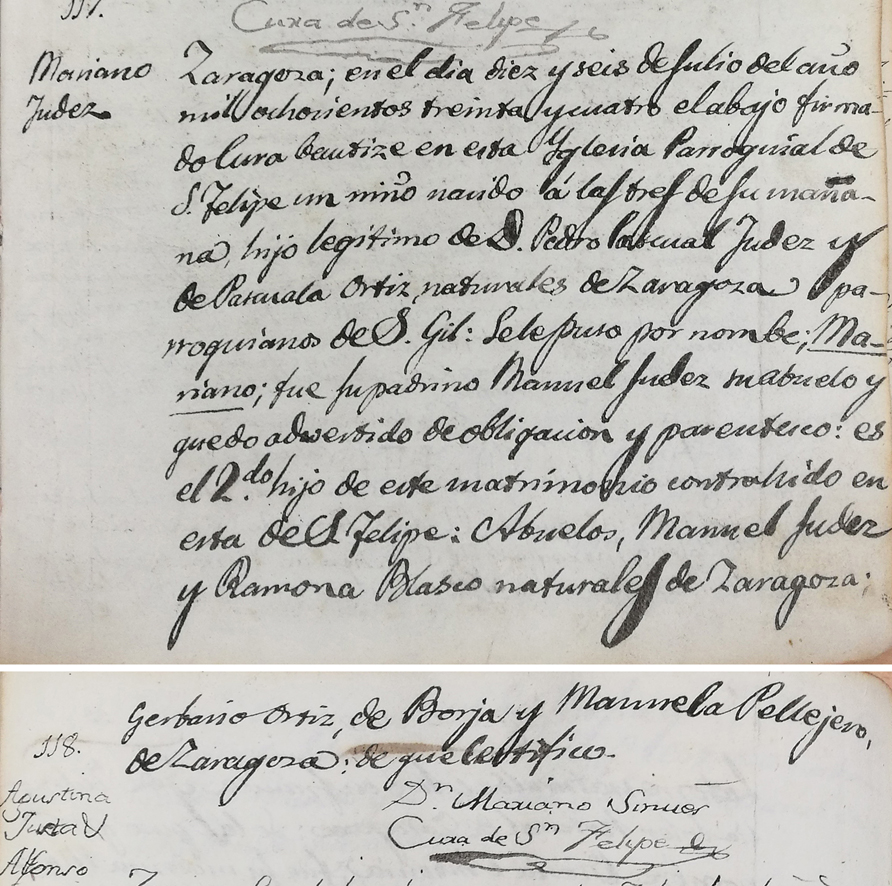 117.
Cura de Sn. Felipe
Mariano
Judez
Zaragoza; en el dia diez y seis de Julio del año
mil ochocientos treinta y cuatro el abajo firma-
do Cura bautize en esta Yglesia Parroquial de
S. Felipe un niño nacido á las tres de su maña-
na, hijo legitimo de D. Pedro Pascual Judez y
de Pascuala Ortiz naturales de Zaragoza y pa-
rroquianos de S. Gil: Se le puso por nombe; Ma-
riano; fue su padrino Manuel Judez su abuelo y
quedo advertido de obligacion y parentesco: es
el 2.do hijo de este matrimonio contrahido en
esta de S. Felipe: Abuelos, Manuel Judez
y Ramona Blasco naturales de Zaragoza;
Ortiz, de Borja y Manuela Pellejero,
de Zaragoza: de que certifico.
118.
Dn. Mariano
Cura de Sn Felipe
Agustina
Justa
Alfonso